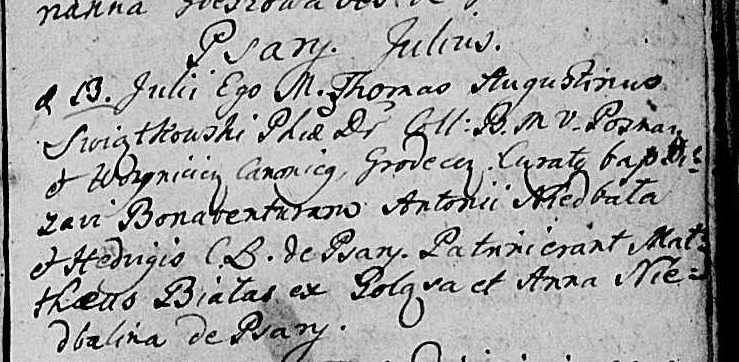 Psary. Julius.
d 13. Julii Ego M. Thomas Augustinus
Swiątkowski Phiæ Dr Coll: B. M V. Posnan
et Canonicq, Grodecen Curatq bapti-
zavi Bonaventuram Antonii Niedbała
et Hedvigis C. L. de Psary. Patrini erant Mat-
thæus Białas ex et Anna Nie-
dbalina de Psary.